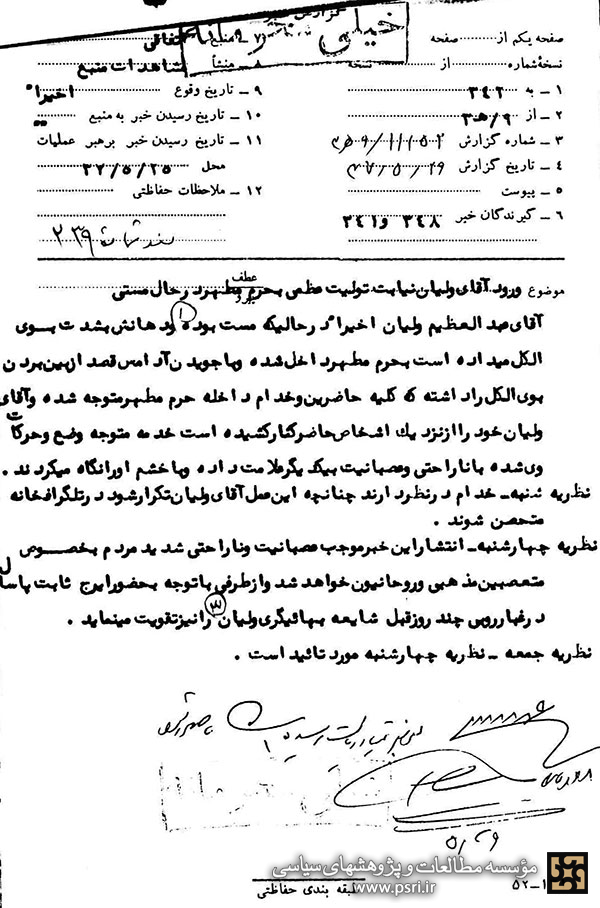 گزارش خبر
خیلی
صفحه یکم از صفحه
نسخهٔ شماره از نسخه
۱ – به ۳۴۲
۲ – از ۹/ﻫ۳
۳ – شماره گزارش
۴ – تاریخ گزارش
۵ – پیوست
۶ – گیرندگان خبر ۳۴۸ و ۳۴۱
۷ – منبع
۸ – منشأ مشاهدات منبع
۹ – تاریخ وقوع اخیراً
۱۰ – تاریخ رسیدن خبر به منبع
۱۱ – تاریخ رسیدن خبر برهبر عملیات
محل ۳۷/۵/۲۵
۱۲ – ملاحظات حفاظتی
موضوع ورود آقای ولیان نیابت تولیت عظمی بحرم مطهر در حال مستی
عطف
پیرو
آقای عبدالعظیم ولیان اخیراً در حالیکه مست بوده ۱ و دهانش بشدت بوی
الکل میداده است بحرم مطهر داخل شده و با جویدن آدامس قصد از بین بردن
بوی الکل را داشته که کلیه حاضرین و خدام داخله حرم مطهر متوجه شده و آقای
ولیان خود را از نزدیک اشخاص حاضر کنار کشیده است خدمه متوجه وضع و حرکات
وی شده با ناراحتی و عصبانیت بیکدیگر علامت داده و با خشم او را نگاه میکردند .
نظریه شنبه – خدام در نظر دارند چنانچه این عمل آقای ولیان تکرار شود در تلگرافخانه
متحصن شوند .
نظریه چهارشنبه – انتشار این خبر موجب عصبانیت و ناراحتی شدید مردم بخصوص
متعصبین مذهبی و روحانیون خواهد شد و از طرفی با توجه بحضور ایرج ثابت پاسال
در غبارروبی چند روز قبل شایعه بهائیگری ولیان ۳ را نیز تقویت مینماید .
نظریه جمعه – نظریه چهارشنبه مورد تائید است .
مؤسسه مطالعات و پژوهشهای سیاسی
www.psri.ir
طبقه بندی حفاظتی
۵۲–۱